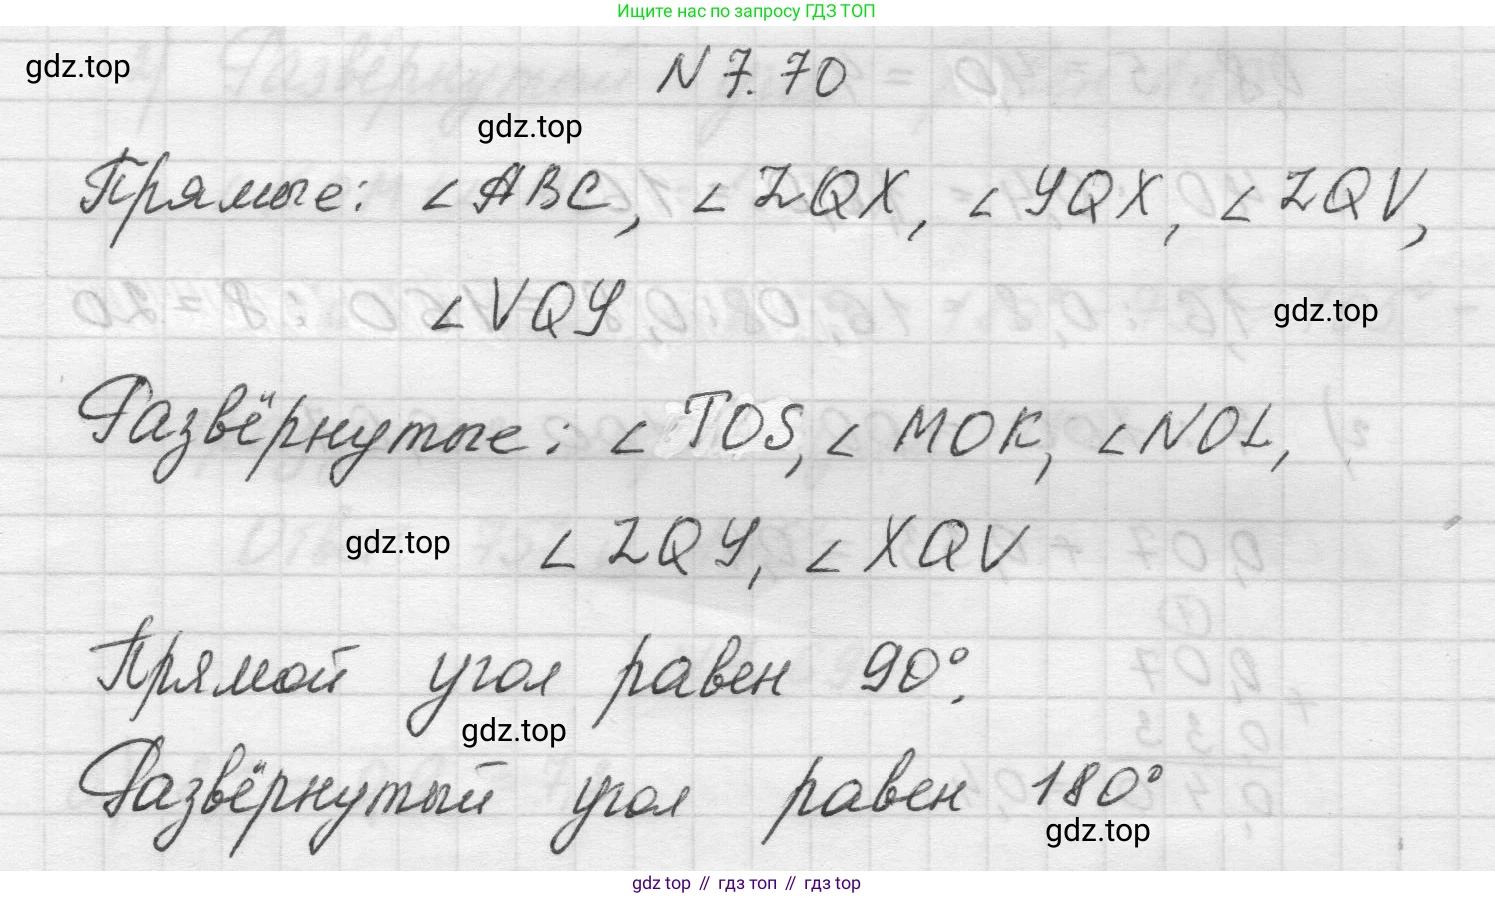 Ищите нас по запросу ГДЗ ТОП
gdz.top
N 7.70
gdz.top
Прямые: ∠ABC, ∠ZQX, ∠YQX, ∠ZQV,
∠VQY
gdz.top
Развёрнутые: ∠TOS, ∠MOK, ∠NOL,
gdz.top
∠ZQY, ∠XQV
Прямой угол равен 90°.
gdz.top
Развёрнутый угол равен 180°
gdz.top
gdz top // гдз топ // гдз top